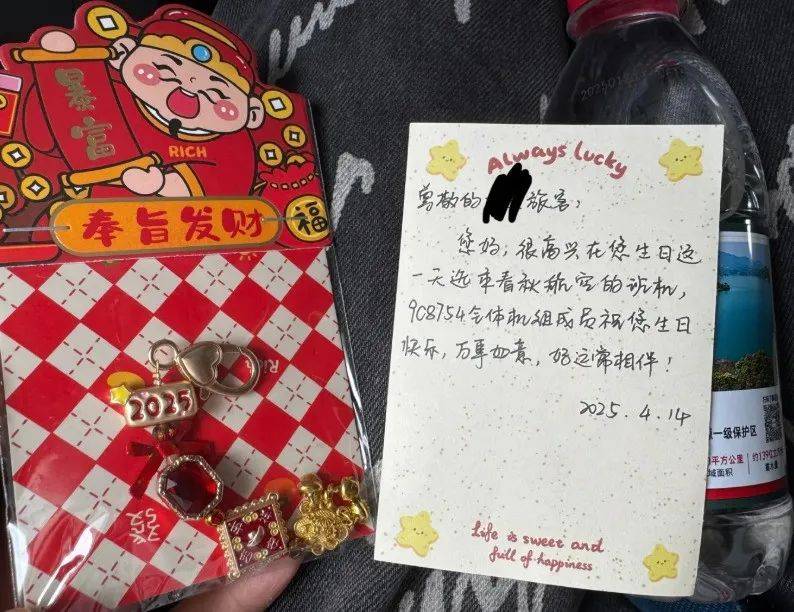 暴富
RICH
奉旨发财
福
2025
Always lucky
尊敬的 旅客：
您好，很高兴在您生日这
一天选乘春秋航空的航班，
9C8754全体机组成员祝您生日
快乐，万事如意，好运常相伴！
2025.4.14
Life is sweet and
full of happiness
一级保护区
平方公里
域面积
约139亿立方米
蓄水量